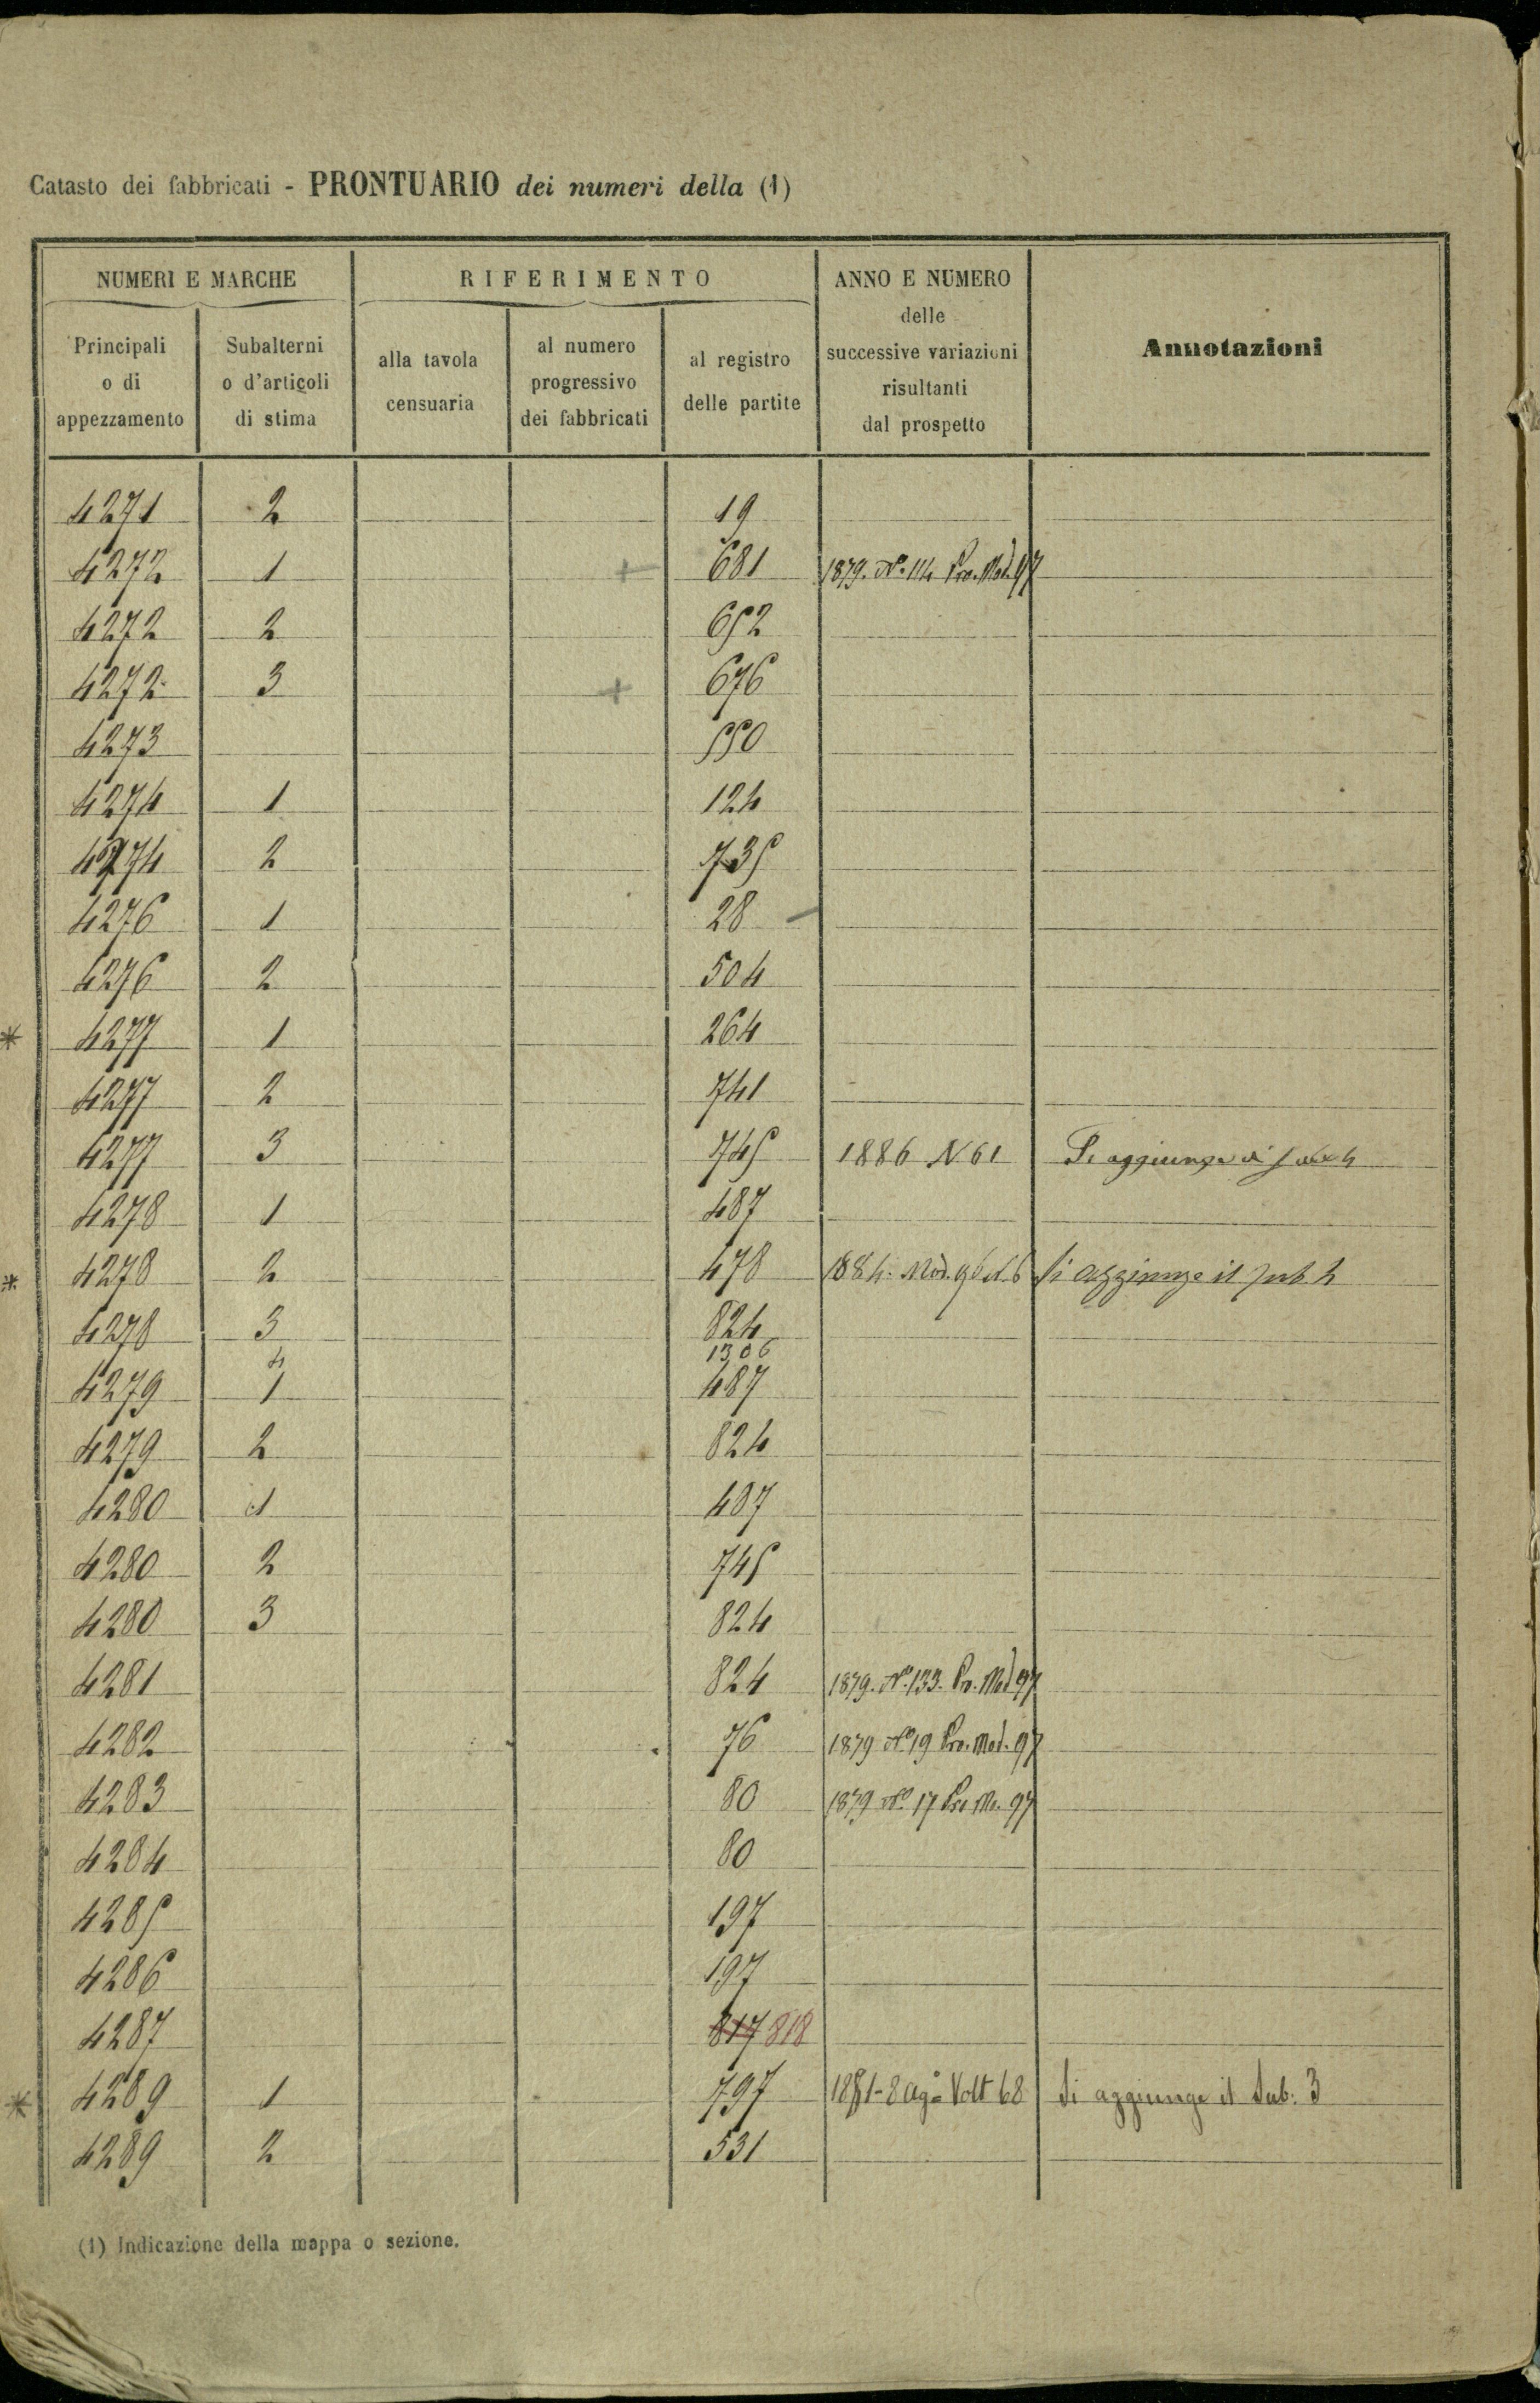 Catasto dei fabbricati - PRONTUARIO dei numeri della (1)
NUMERI E MARCHE
RIFERIMENTO
ANNO E NUMERO
delle
successive variazioni
risultanti
dal prospetto
Annotazioni
Principali
o di
appezzamento
Subalterni
o d'articoli
di stima
alla tavola
censuaria
al numero
progressivo
dei fabbricati
al registro
delle partite
4271 2 19
4272 1 + 681 1879. N.º 114 Pro. Mod. 97
4272 2 652
4272 3 + 676
4273 550
4274 1 124
4274 2 735
4276 1 28 -
4276 2 504
* 4277 1 264
4277 2 741
4277 3 745 1886 N 61 Si aggiunge il sub 4
4278 1 487
* 4278 2 478 1884. Mod. 96 N. 6 Si aggiunge il sub. 4
4278 3 824
4 1306
4279 1 487
4279 2 824
4280 1 487
4280 2 745
4280 3 824
4281 824 1879. N.º 133. Pro. Mod 97
4282 76 1879 N.º 19 Pro. Mod. 97
4283 80 1879 N.º 17 Pro Mo. 97
4284 80
4285 197
4286 197
4287 817 818
* 4289 1 797 1881-8 Agº Volt 68 Si aggiunge il Sub. 3
4289 2 531
(1) Indicazione della mappa o sezione.